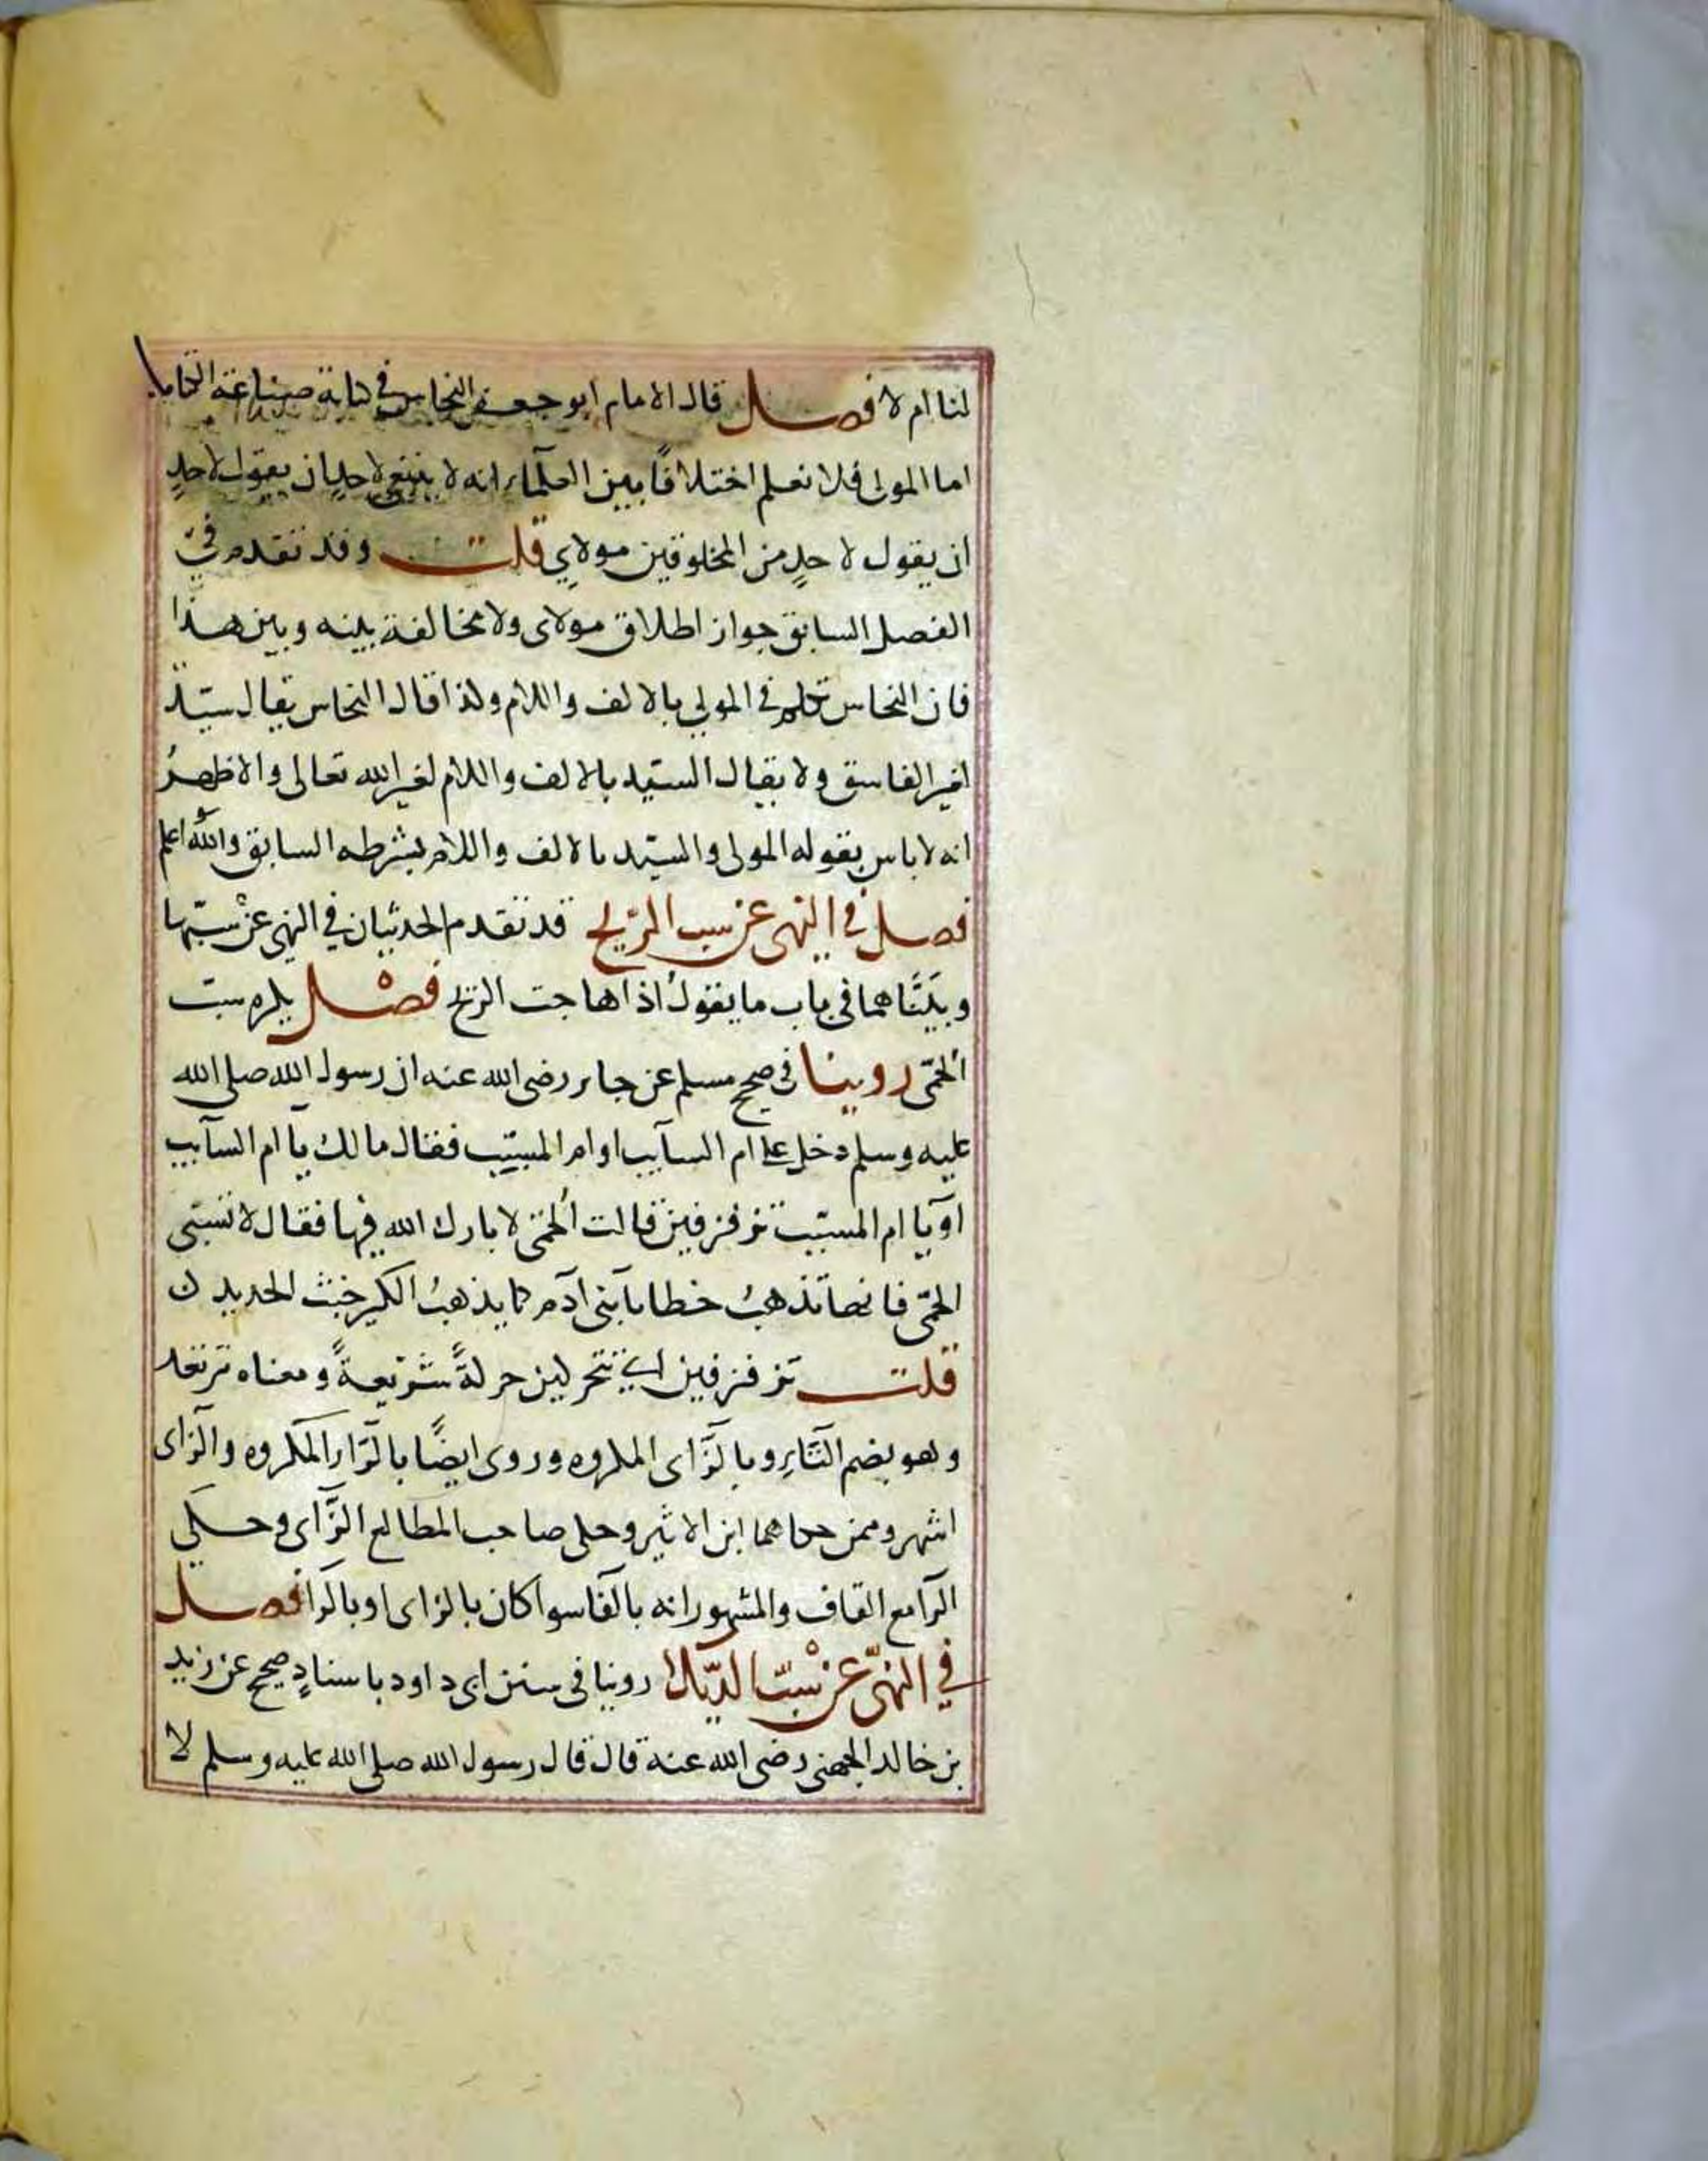 لنا ام لا فصل قال الامام ابو جعفر النحاس في كتابه صناعة الكتاب
اما المولى فلا نعلم اختلافًا بين العلماء انه لا ينبغي لاحدٍ ان يقول لاحدٍ
ان يقول لاحدٍ من المخلوقين مولاي قلت وقد تقدم في
الفصل السابق جواز اطلاق مولاى ولا مخالفة بينه وبين هذا
فان النحاس تكلم في المولي بالالف واللام ولذا قال النحاس يقال سيّد
لغير الفاسق ولا يقال السيّد بالالف واللام لغير الله تعالى والاظهرُ
انه لا باس بقوله المولى والسيّد بالالف واللام بشرطه السابق والله اعلم
فصل في النهى عن سب الرّيح قد تقدم الحديثان في النهى عن سبّها
وبيّنّاهما في باب ما يقولُ اذا هاجت الريح فصْل يكره سبّ
الحمّى روينا في صحيح مسلم عن جابر رضى الله عنه ان رسول الله صلى الله
عليه وسلم دخل على ام السآيب او ام المسيّب فقال مالك يا ام السآيب
او يا ام المسيّب تزفزفين قالت الحمّى لا بارك الله فيها فقال لا تسبّى
الحمّى فانها تذهبُ خطايا بنى آدم كما يذهبُ الكير خبث الحديد
قلت تزفزفين اي تتحركين حركةً سَريعةً ومعناه ترتعد
وهو بضم التّاءِ وبالزّاى المكروه وروى ايضًا بالرّاء المكروه والزاى
اشهر وممن حكاهما ابن الاثير وحكى صاحب المطالع الزّاى وحكى
الرا مع القاف والمشهور انه بالفا سوا كان بالزاى او بالرا فصل
في النهىّ عن سْبّ الديّك روينا في سنن ابى داود باسنادٍ صحيح عن زيد
بن خالد الجهنى رضى الله عنه قال قال رسول الله صلى الله عليه وسلم لا